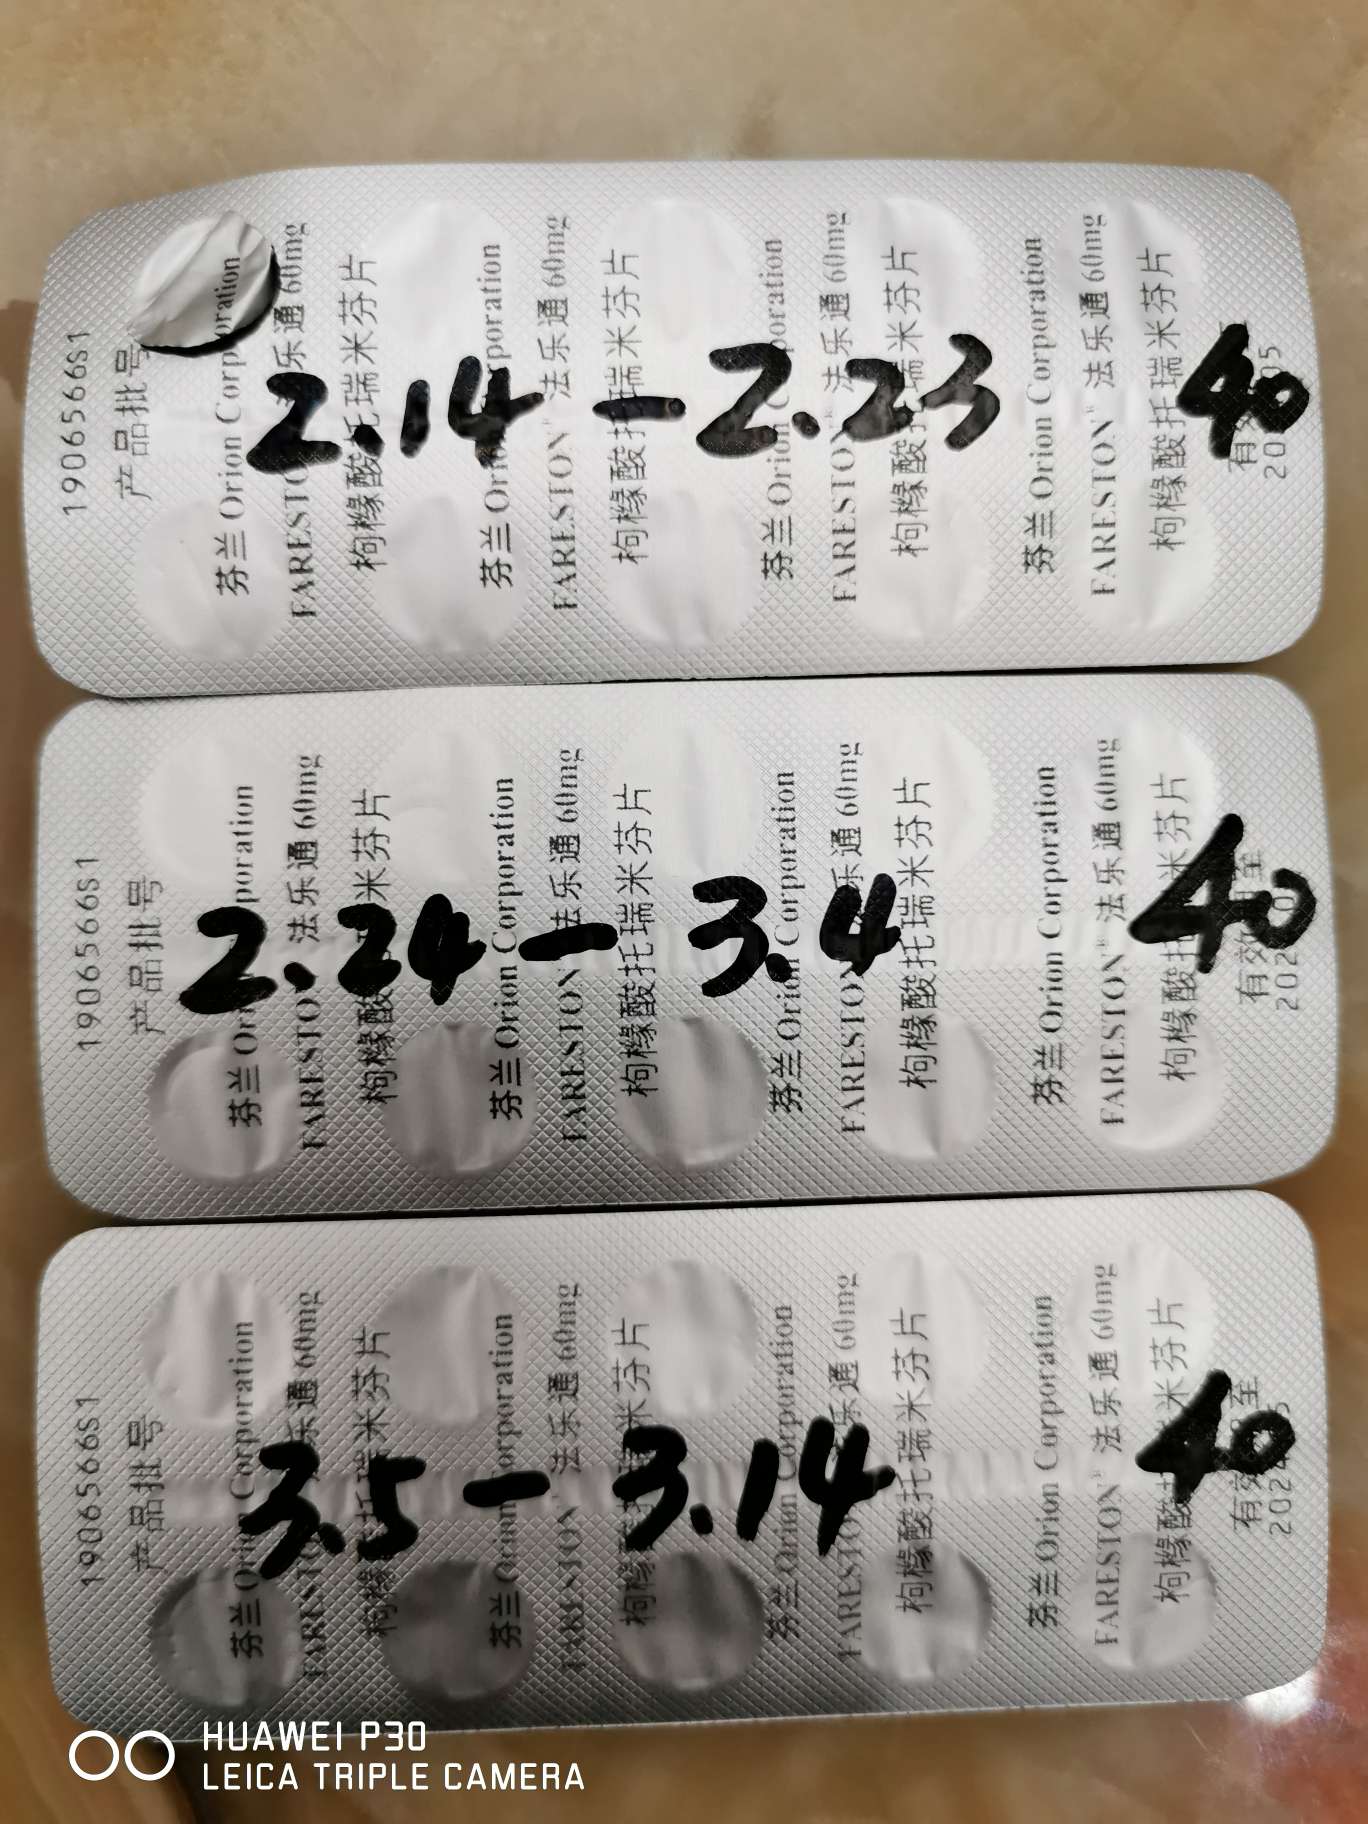 1906566S1
产品批号
芬兰 Orion Corporation
FARESTON® 法乐通 60mg
枸橼酸托瑞米芬片
芬兰 Orion Corporation
FARESTON® 法乐通 60mg
枸橼酸托瑞米芬片
芬兰 Orion Corporation
FARESTON® 法乐通 60mg
枸橼酸托瑞米芬片
芬兰 Orion Corporation
FARESTON® 法乐通 60mg
枸橼酸托瑞米芬片
2.14 - 2.23 40
1906566S1
产品批号
芬兰 Orion Corporation
FARESTON® 法乐通 60mg
枸橼酸托瑞米芬片
芬兰 Orion Corporation
FARESTON® 法乐通 60mg
枸橼酸托瑞米芬片
芬兰 Orion Corporation
FARESTON® 法乐通 60mg
枸橼酸托瑞米芬片
芬兰 Orion Corporation
FARESTON® 法乐通 60mg
枸橼酸托瑞米芬片
有效 至
2.24 - 3.4 40
1906566S1
产品批号
芬兰 Orion Corporation
FARESTON® 法乐通 60mg
枸橼酸托瑞米芬片
芬兰 Orion Corporation
FARESTON® 法乐通 60mg
枸橼酸托瑞米芬片
芬兰 Orion Corporation
FARESTON® 法乐通 60mg
枸橼酸托瑞米芬片
芬兰 Orion Corporation
FARESTON® 法乐通 60mg
枸橼酸托瑞米芬片
有效 至
3.5 - 3.14 40
HUAWEI P30
LEICA TRIPLE CAMERA